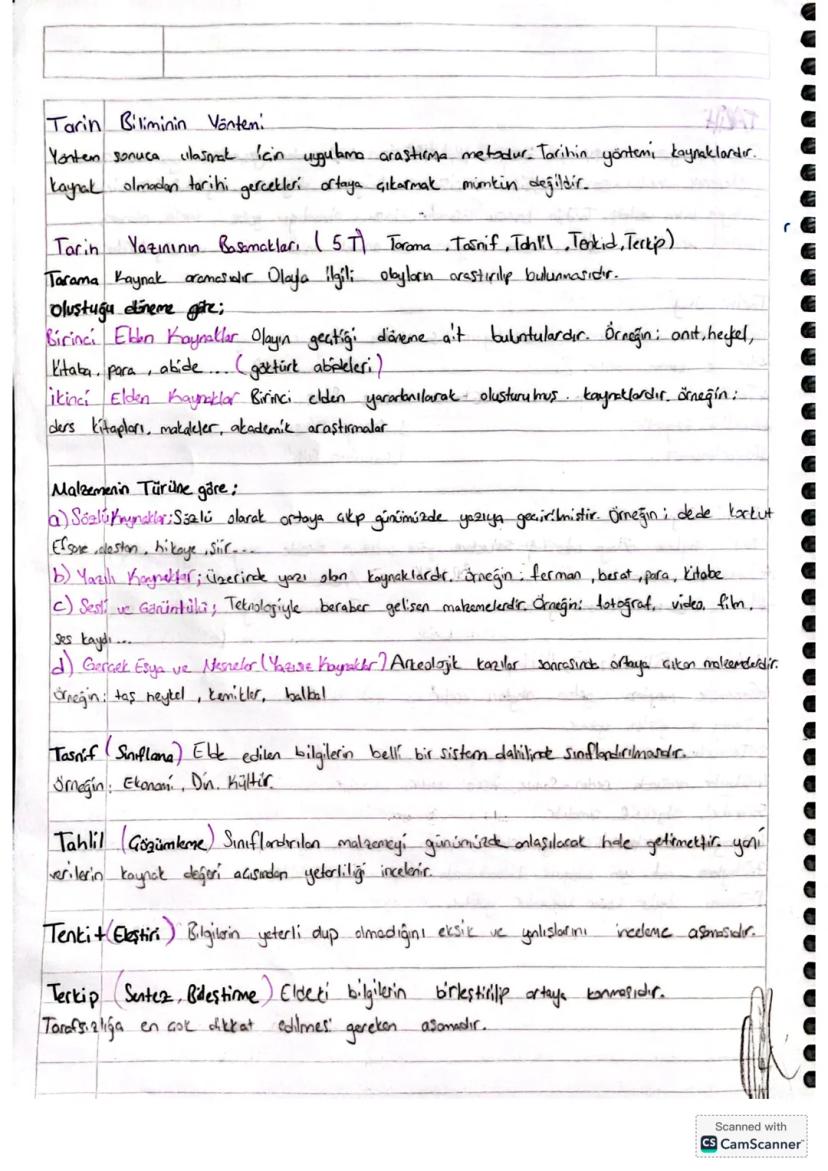 Tarih Biliminin Yöntemi
Yöntem sonuca ulaşmak için uygulama araştırma metodur. Tarihin yöntemi kaynaklardır.
kaynak olmadan tarihi gerçekleri ortaya çıkarmak mümkün değildir.
Tarih Yazınının Basamakları (5T) Tarama, Tasnif, Tahlil, Tenkid, Terkip)
Tarama Kaynak aramasıdır Olayla ilgili olayların araştırılıp bulunmasıdır.
Oluştuğu döneme göre;
Birinci Elden Kaynaklar Olayın geçtiği döneme ait buluntulardır. Örneğin; anıt, heykel,
kitabe, para, abide... (göktürk abideleri)
İkinci Elden Kaynaklar Birinci elden yararlanılarak oluşturulmuş. kaynaklardır. örneğin:
ders kitapları, makaleler, akademik araştırmalar
Malzemenin Türüne göre;
a) Sözlü Kaynaklar; Sözlü olarak ortaya çıkıp günümüzde yazıya geçirilmiştir. Örneğin; dede korkut
Efsane, destan, hikaye, şiir...
b) Yazılı Kaynaklar; üzerinde yazı olan kaynaklardır. örneğin: ferman, berat, para, kitabe
c) Sesli ve Görüntülü; Teknolojiyle beraber gelişen malzemelerdir. Örneğin: fotoğraf, video, film,
ses kaydı...
d) Gerçek Eşya ve Nesneler (Yazısız Kaynaklar) Arkeolojik kazılar sonrasında ortaya çıkan malzemelerdir.
Örneğin: taş heykel, kemikler, balbal
Tasnif (Sınıflama) Elde edilen bilgilerin belli bir sistem dahilinde sınıflandırılmasıdır.
Örneğin; Ekonomi, Din, Kültür.
Tahlil (Çözümleme) Sınıflandırılan malzemeyi günümüzde anlaşılacak hale getirmektir. yani
verilerin kaynak değeri açısından yeterliliği incelenir.
Tenkit (Eleştiri) Bilgilerin yeterli olup olmadığını eksik ve yanlışlarını inceleme aşamasıdır.
Terkip (Sentez, Birleştirme) Eldeki bilgilerin birleştirilip ortaya konmasıdır.
Tarafsızlığa en çok dikkat edilmesi gereken aşamadır.
Scanned with
CS CamScanner